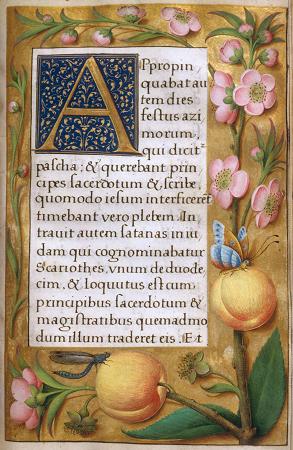 APpropin
quabat au
tem dies
festus azi
morum,
qui dicit
pascha; & querebant prin
cipes sacerdotum & scribe,
quomodo iesum interficeret
timebant vero plebem. In
travit autem satanas in iu
dam qui cognominabatur
Scariothes, vnum de duode
cim, & loquutus est cum
principibus sacerdotum &
magistratibus quemadmo
dum illum traderet eis. Et